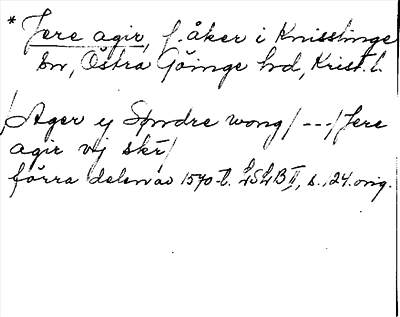 * Jere agir, f. åker i Knisslinge
sn, Östra Göinge hd, Krist. l.
/Ager ej Søndre wong/ --- / Jere
agir vj skr/
förra delen av 1570-t. LSLB II, s. 124. orig.